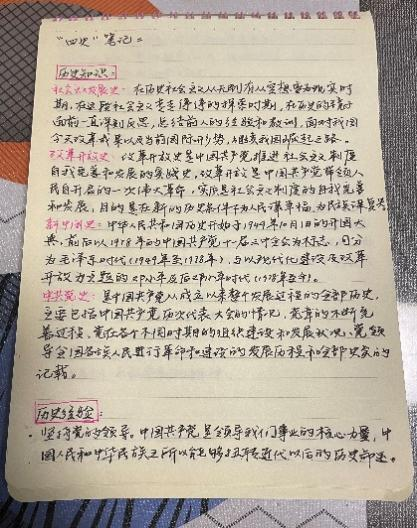 "四史"笔记：
历史知识：
社会主义发展史：在历史社会主义从无到有从空想 现实时
期，在这段社会主义 的探索时期，在历史的镜子
面前一直深刻反思，总结前人的经验和教训，面对我国
今天改革成果以及当前国际形势，继续我国崛起之路。
改革开放史：改革开放史是中国共产党推进社会主义制度
自我完善和发展的实践史，改革开放是中国共产党带领人
民自开启的一次伟大革命，实质是社会主义制度的自我完善
和发展，目的是在新的历史条件下为人民谋幸福，为民族谋复兴
新中国史：中华人民共和国历史开始于1949年10月1日的开国大
典，前后以1978年的中国共产党十一届三中全会为标志，可分
为毛泽东时代(1949年至1978年)，与以现代化建设及改革
开放为主题的邓小平及后邓小平时代(1978年至今)。
中共党史：是中国共产党从成立以来整个发展过程的全部历史，
主要包括中国共产党历次代表大会的情况，党章的不断完
善过程，党在各个不同时期的组织建设和发展状况、党领
导全国各族人民进行革命和建设的发展历程等全部史实的
记载。
历史经验：
· 坚持党的领导。中国共产党是领导我们事业的核心力量，中
国人民和中华民族之所以能够扭转近代以后的历史命运、